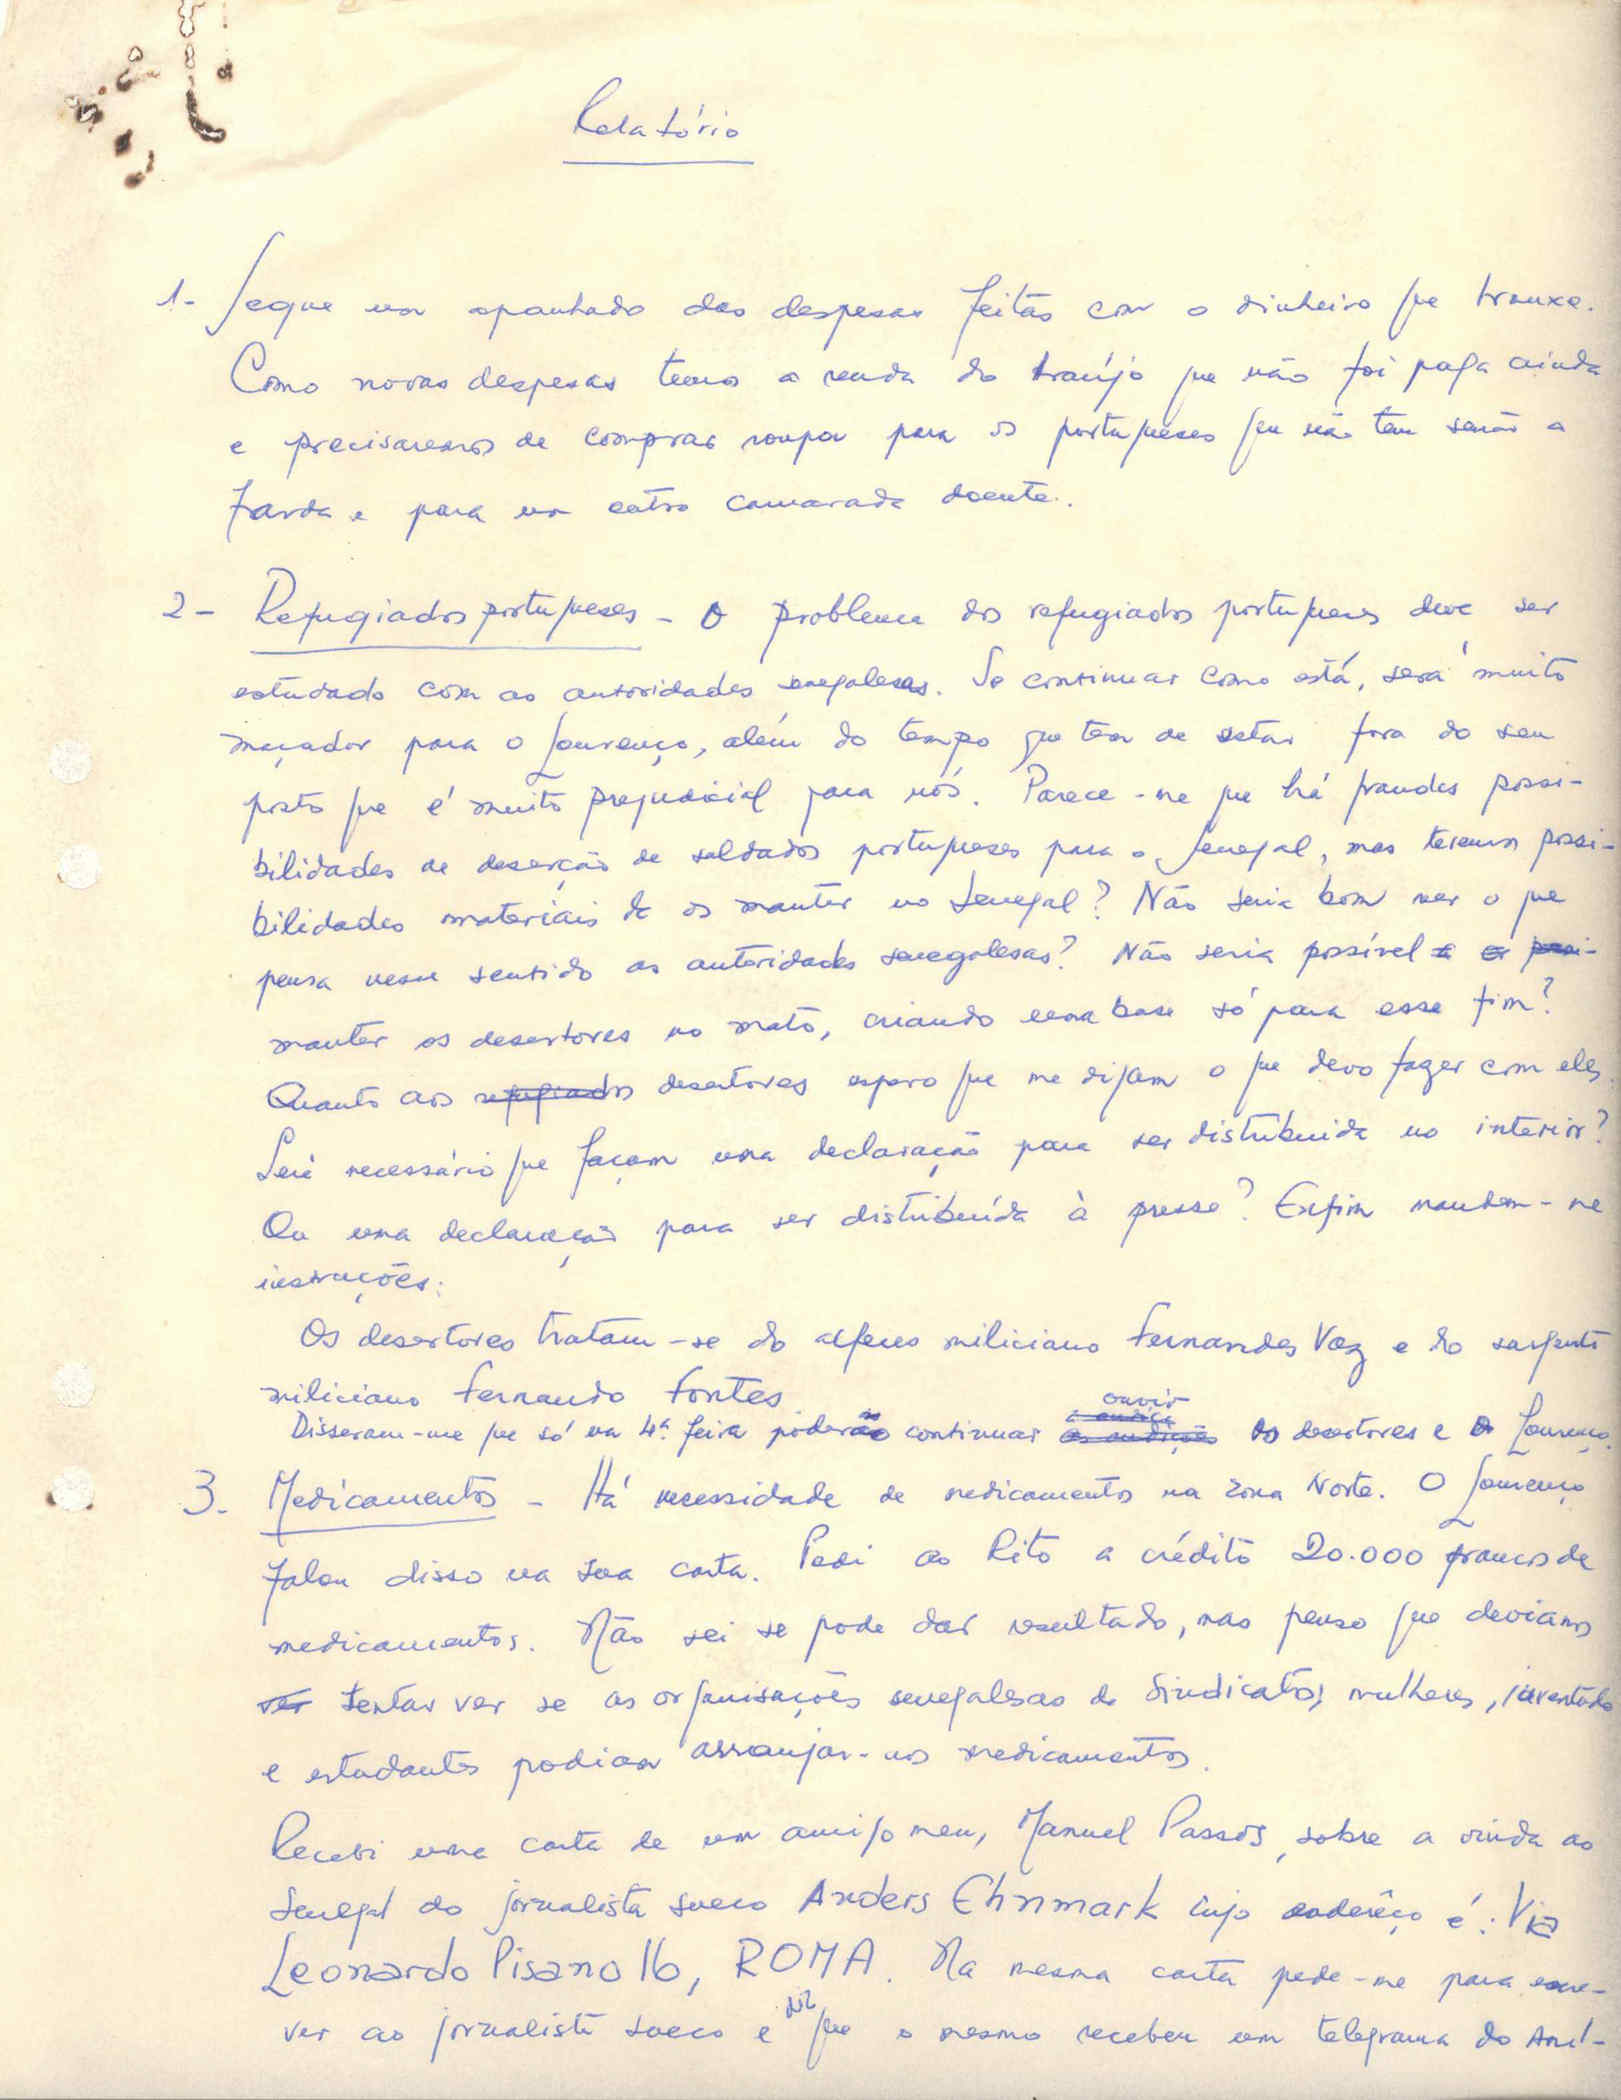 Relatório
1- Segue um apanhado das despesas feitas com o dinheiro que trouxe.
Como novas despesas temos a renda do Araújo que não foi paga ainda
e precisaremos de comprar roupa para os portugueses que não tem senão a
farda e para um outro camarada doente.
2- Refugiados portugueses - O problema dos refugiados portugueses deve ser
estudado com as autoridades senegalesas. Se continuar como está, será muito
maçador para o Lourenço, além do tempo que tem de estar fora do seu
posto que é muito prejudicial para nós. Parece-me que há grandes possi-
bilidades de deserção de soldados portugueses para o Senegal, mas teremos possi-
bilidades materiais de os manter no Senegal? Não seria bom ver o que
pensa nesse sentido as autoridades senegalesas? Não seria possível
manter os desertores no mato, criando uma base só para esse fim?
Quanto aos refugiados desertores espero que me digam o que devo fazer com eles.
Será necessário que façam uma declaração para ser distribuida no interior?
Ou uma declaração para ser distribuída à presse? Enfim mandem-me
instruções.
Os desertores tratam-se do alferes miliciano Fernandes Vaz e do sargento
miliciano Fernando Fontes
Disseram-me que só na 4ª feira poderão continuar ouvir os desertores e o Lourenço.
3- Medicamentos - Há necessidade de medicamentos na zona Norte. O Lourenço
falou disso na sua carta. Pedi ao Rito a crédito 20.000 francos de
medicamentos. Não sei se pode dar resultado, mas penso que deviamos
ver tentar ver se as organisações senegalesas de Sindicatos, mulheres, juventude
e estudantes podiam arranjar-nos medicamentos.
Recebi uma carta de um amigo meu, Manuel Passos, sobre a vinda ao
Senegal do jornalista sueco Anders Ehnmark cujo enderêço é: Via
Leonardo Pisano 16, ROMA. Na mesma carta pede-me para escre-
ver ao jornalista sueco e diz que o mesmo recebeu um telegrama do Amí-